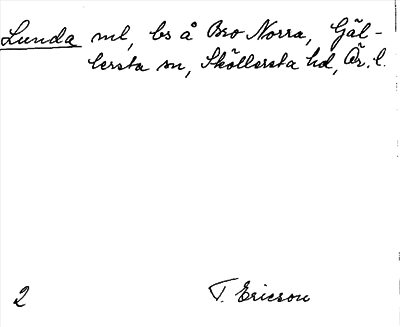 Lunda ml, bs å Bro Norra, Gäl-
lersta sn, Sköllersta hd, Ör. l.
2 T. Ericson